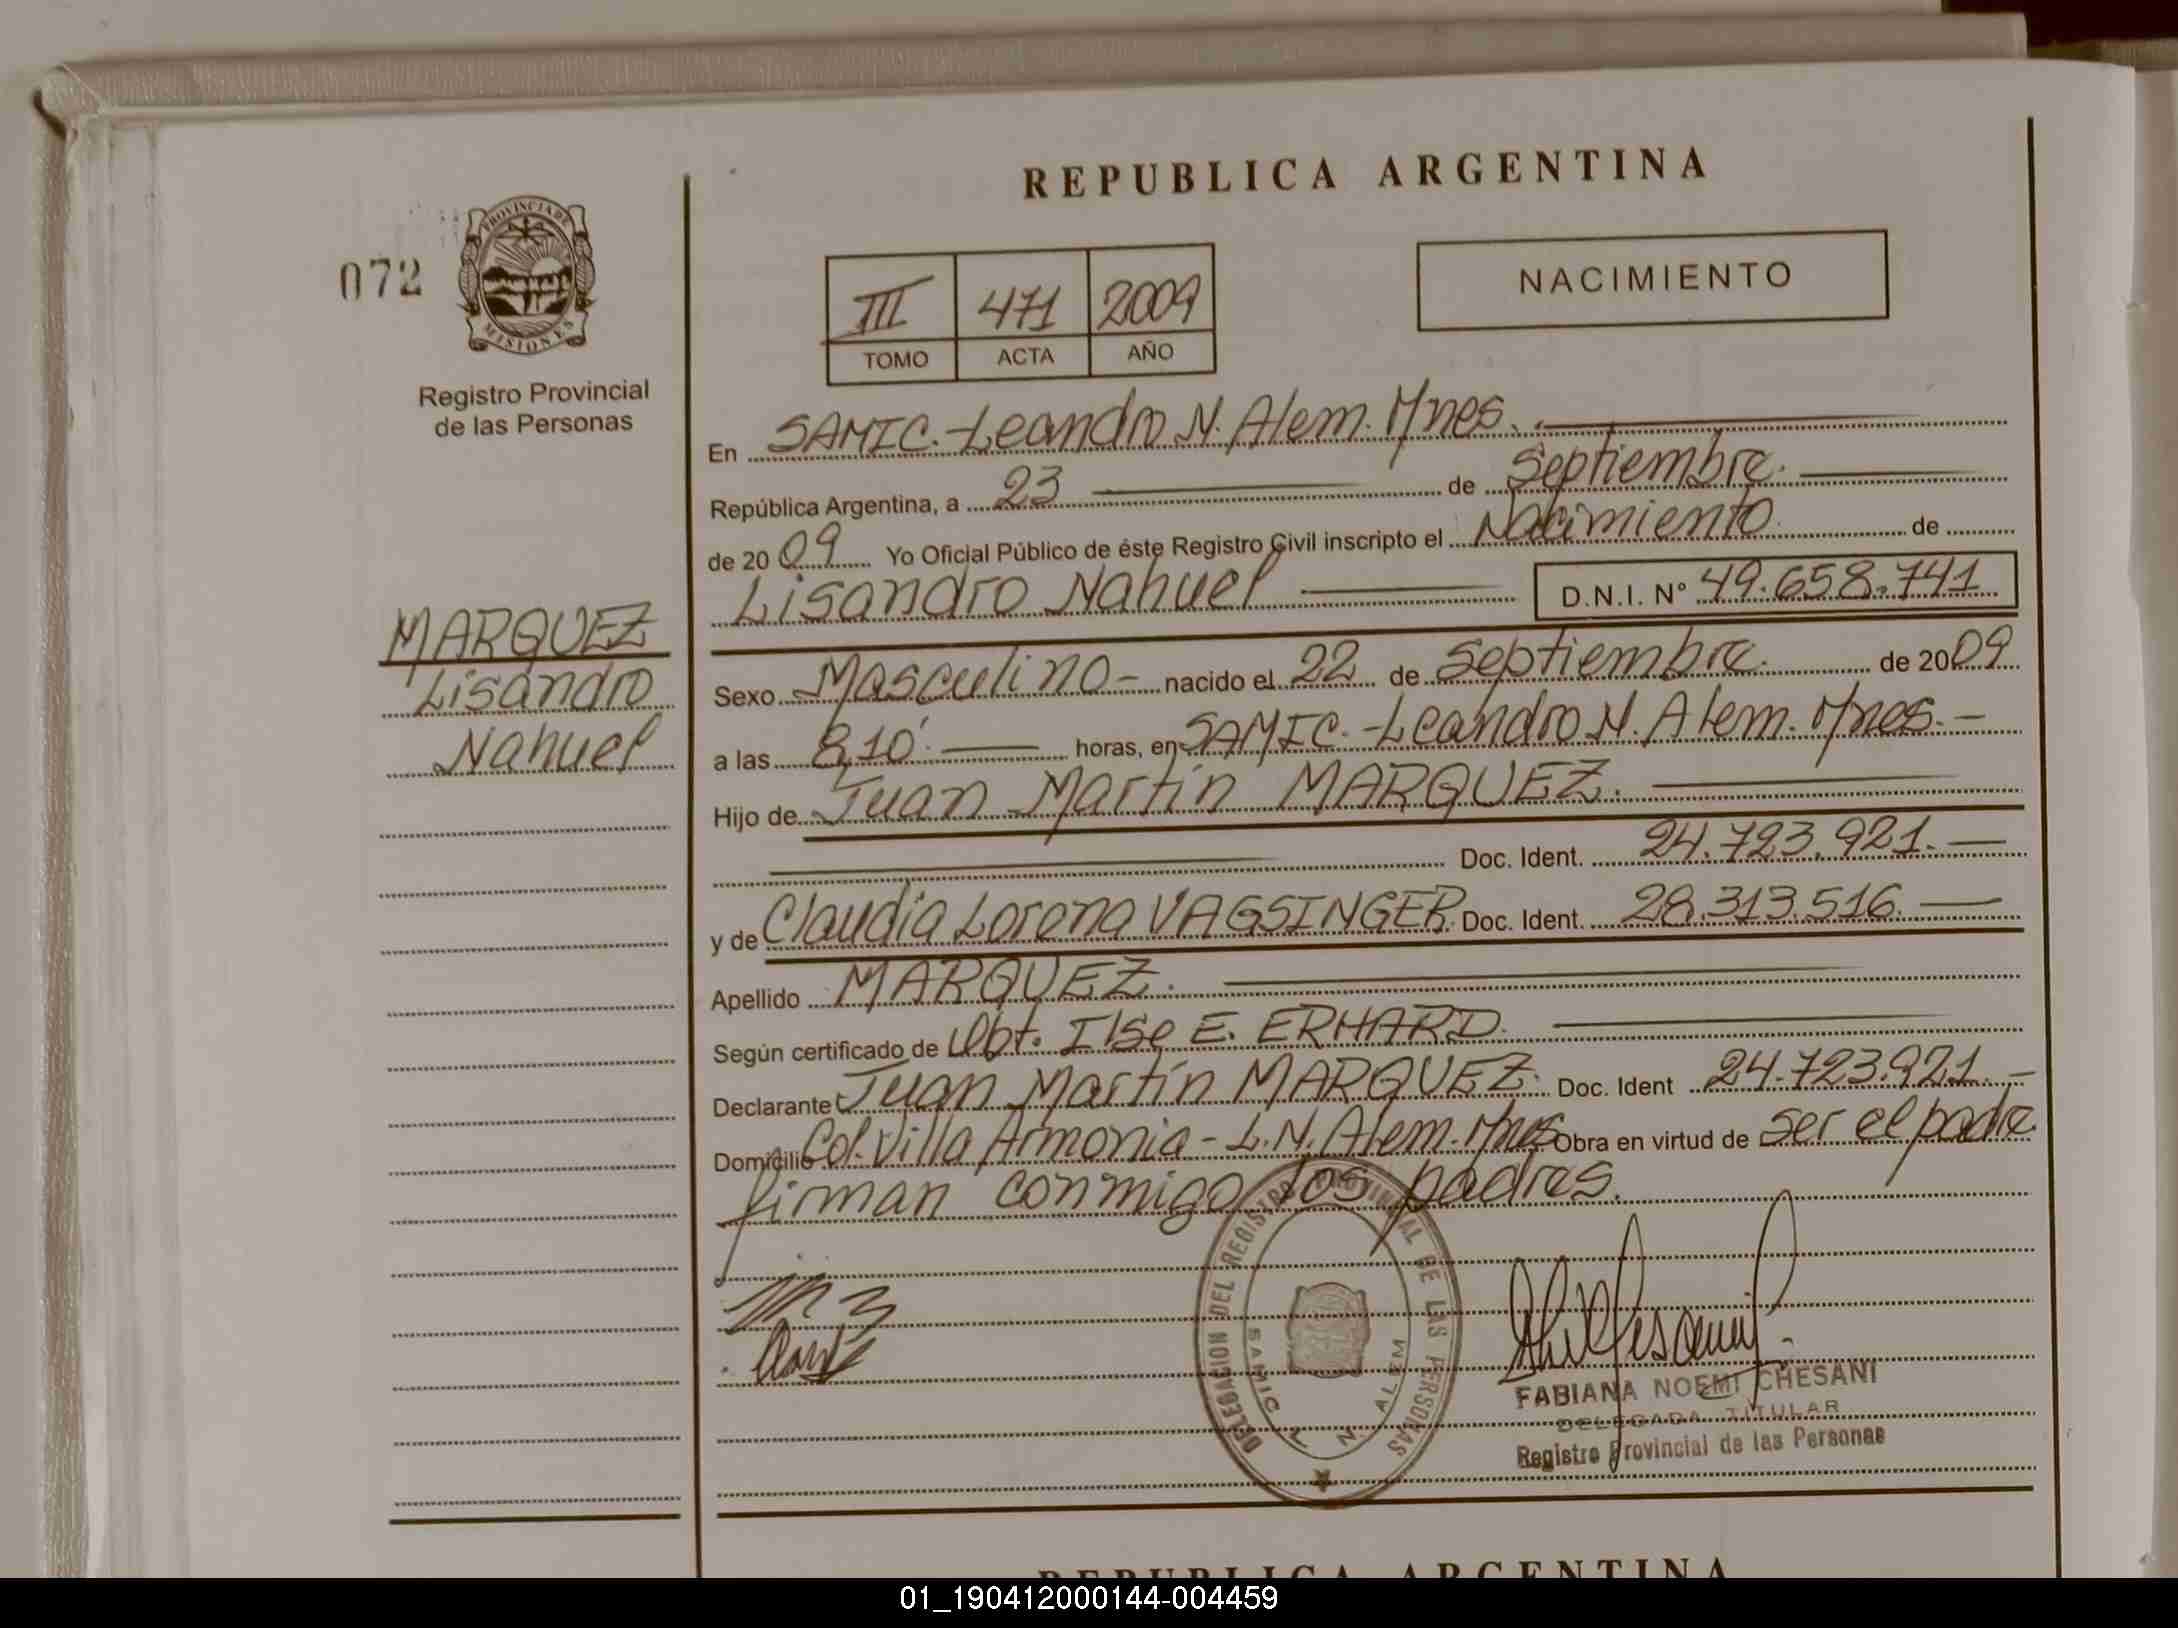 REPUBLICA ARGENTINA
072
PROVINCIA DE
MISIONES
Registro Provincial
de las Personas
III 471 2009
TOMO ACTA AÑO
NACIMIENTO
En SAMIC.-Leandro N. Alem. Mnes.
República Argentina, a 23 de Septiembre.
de 20 09 Yo Oficial Público de éste Registro Civil inscripto el Nacimiento de
Lisandro Nahuel D.N.I. N° 49.658.741
MARQUEZ
Lisandro
Nahuel
Sexo Masculino - nacido el 22 de Septiembre. de 2009
a las 8,10'. horas, en SAMIC.-Leandro N. Alem. Mnes. -
Hijo de Juan Martín MARQUEZ.
Doc. Ident. 24.723.921.
y de Claudia Lorena VAGSINGER. Doc. Ident. 28.313.516.
Apellido MARQUEZ.
Según certificado de Obt. Ilse E. ERHARD.
Declarante Juan Martín MARQUEZ. Doc. Ident 24.723.921. -
Domicilio Col. Villa Armonia - L.N. Alem. Mnes. Obra en virtud de ser el padre.
firman conmigo los padres.
DELEGACION DEL REGISTRO PROVINCIAL DE LAS PERSONAS
SAMIC L. N. ALEM
FABIANA NOEMI CHESANI
DELEGADA TITULAR
Registro Provincial de las Personas
REPUBLICA ARGENTINA
01_190412000144-004459